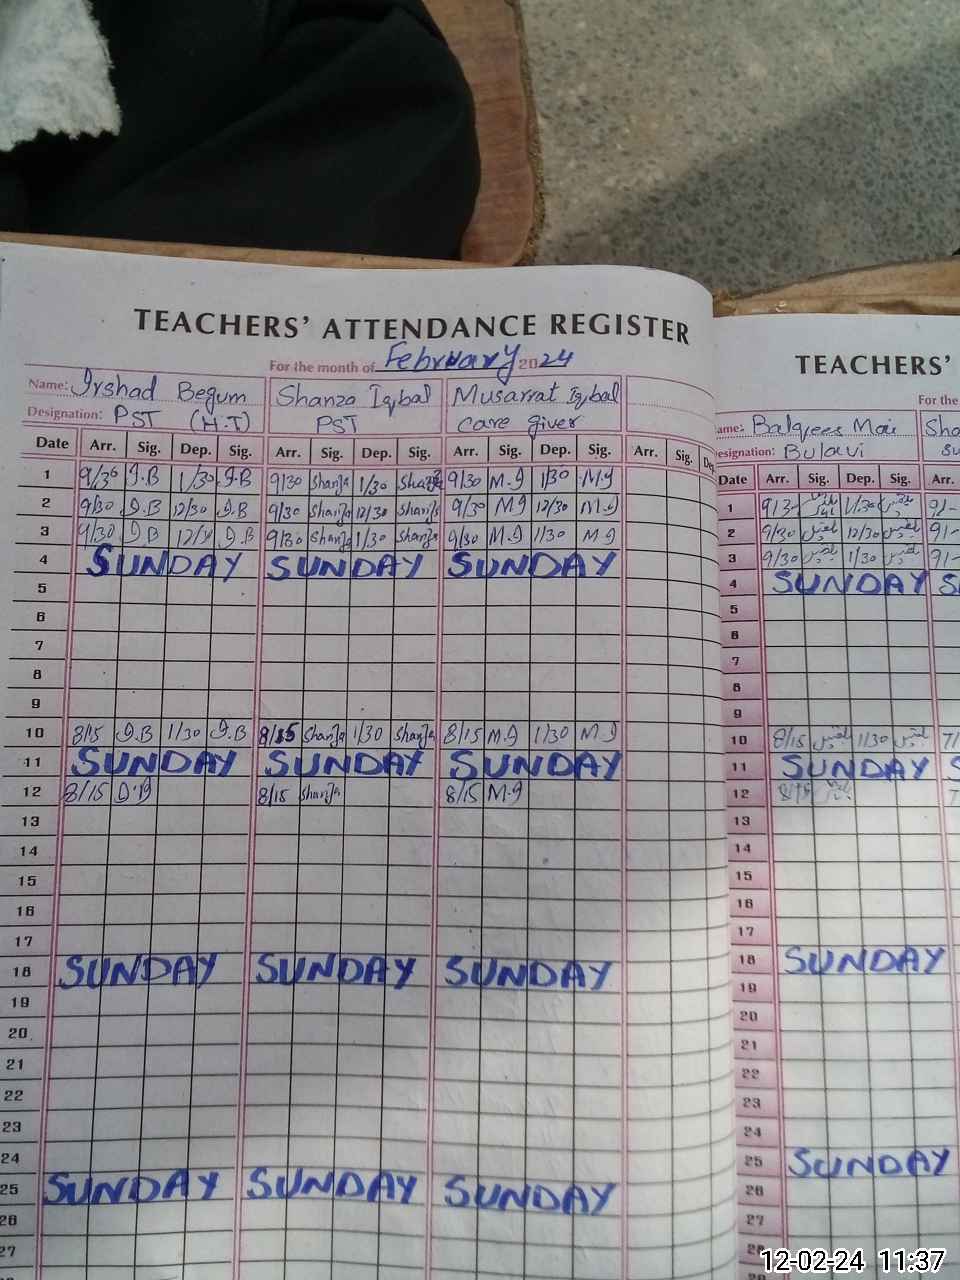 TEACHERS' ATTENDANCE REGISTER
For the month of February 2024
Name: Irshad Begum Shanza Iqbal Musarrat Iqbal
Designation: PST (H.T) PST care giver
Date Arr. Sig. Dep. Sig. Arr. Sig. Dep. Sig. Arr. Sig. Dep. Sig. Arr. Sig. Dep
1 9/30 I.B 1/30 I.B 9/30 Shanza 1/30 Shanza 9/30 M.I 1/30 M.I
2 9/30 I.B 12/30 I.B 9/30 Shanza 12/30 Shanza 9/30 M.I 12/30 M.I
3 9/30 I.B I.B 9/30 Shanza 1/30 Shanza 9/30 M.I 1/30 M.I
4 SUNDAY SUNDAY SUNDAY
5
6
7
8
9
10 8/15 I.B 1/30 I.B 8/15 Shanza 1/30 Shanza 8/15 M.I 1/30 M.I
11 SUNDAY SUNDAY SUNDAY
12 8/15 I.B 8/15 Shanza 8/15 M.I
13
14
15
16
17
18 SUNDAY SUNDAY SUNDAY
19
20
21
22
23
24
25 SUNDAY SUNDAY SUNDAY
26
27
TEACHERS'
For the
ame: Balqees Mai Sha
esignation: Bulavi
Date Arr. Sig. Dep. Sig. Arr.
1 1/30 بلقیس 9/-
2 9/30 بلقیس 12/30 بلقیس 9/-
3 9/30 بلقیس 1/30 بلقیس 9/-
4 SUNDAY S
5
6
7
8
9
10 8/15 بلقیس 1/30 بلقیس 7/
11 SUNDAY S
12 8/15 بلقیس 7
13
14
15
16
17
18 SUNDAY
19
20
21
22
23
24
25 SUNDAY
26
27
28
12-02-24 11:37